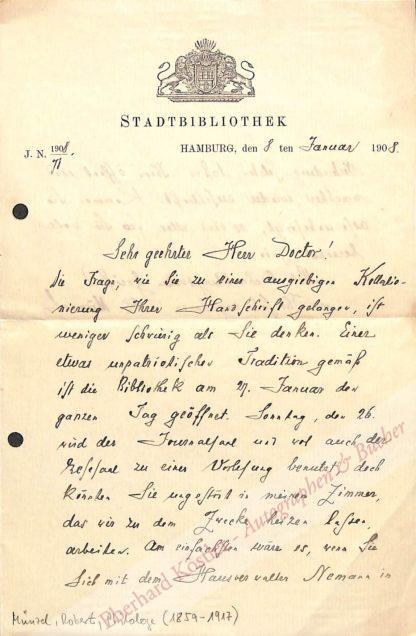 STADTBIBLIOTHEK
J. N. 1908./71.
HAMBURG, den 8 ten Januar 1908.
Sehr geehrter Herr Doctor!
Die Frage, wie Sie zu einer ausgiebigen Kollatio-
nierung Ihrer Handschrift gelangen, ist
weniger schwierig als Sie denken. Einer
etwas unpatriotischen Tradition gemäß
ist die Bibliothek am 27. Januar den
ganzen Tag geöffnet. Sonntag, den 26.
wird der Journalsaal und wol auch der
Lesesaal zu einer Vorlesung benutzt, doch
könnten Sie ungestört in meinem Zimmer,
das wir zu dem Zwecke heizen lassen,
arbeiten. Am einfachsten wäre es, wenn Sie
Sich mit dem Hausverwalter Nemann in
Münzel, Robert, Philologe (1859-1917)
Eberhard Köstler Autographen & Bücher